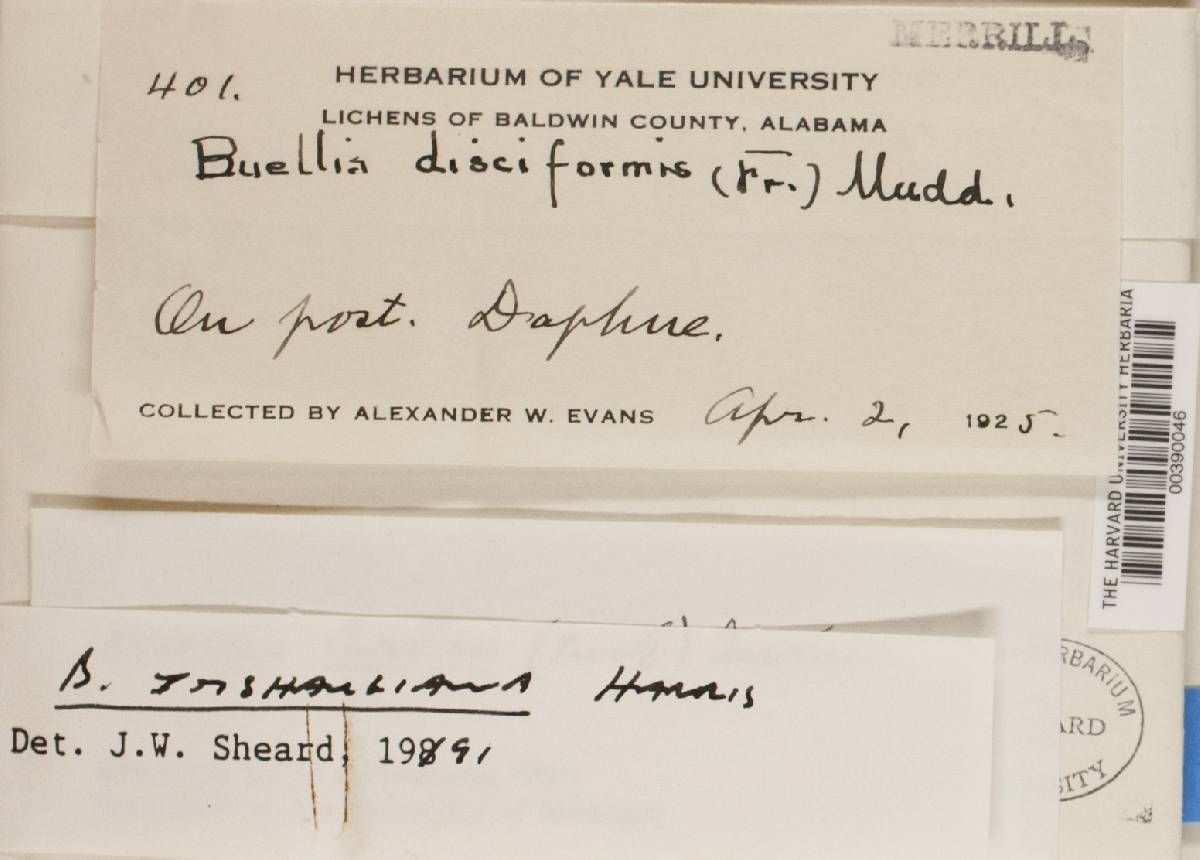 MERRILL
401.
HERBARIUM OF YALE UNIVERSITY
LICHENS OF BALDWIN COUNTY, ALABAMA
Buellia disciformis (Fr.) Mudd.
On post. Daphne.
COLLECTED BY ALEXANDER W. EVANS Apr. 2, 1925.
THE HARVARD UNIVERSITY HERBARIA
00390046
B. HARRIS
Det. J.W. Sheard, 1991
ERBARIUM
ARD
SITY